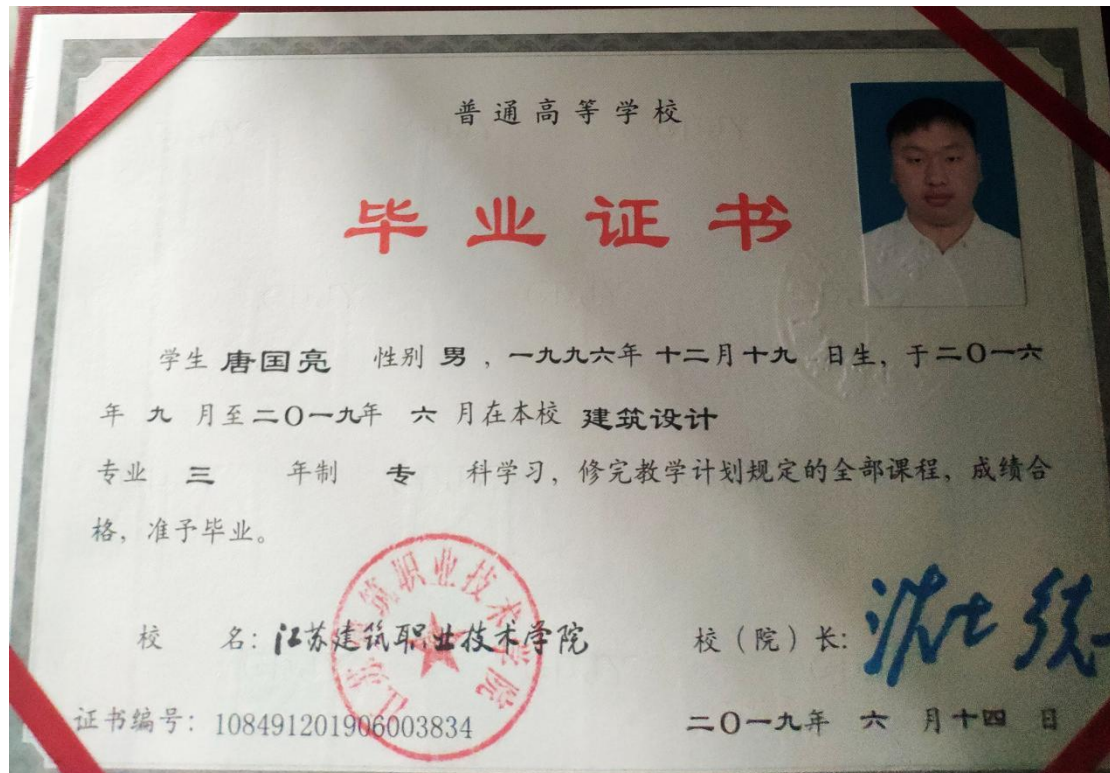 普通高等学校
毕业证书
学生 唐国亮 性别 男 ，一九九六年 十二月十九 日生，于二〇一六
年 九 月至二〇一九年 六 月在本校 建筑设计
专业 三 年制 专 科学习，修完教学计划规定的全部课程，成绩合
格，准予毕业。
江苏建筑职业技术学院
校 名：江苏建筑职业技术学院 校（院）长：沈士德
证书编号：108491201906003834 二〇一九年 六 月十四 日